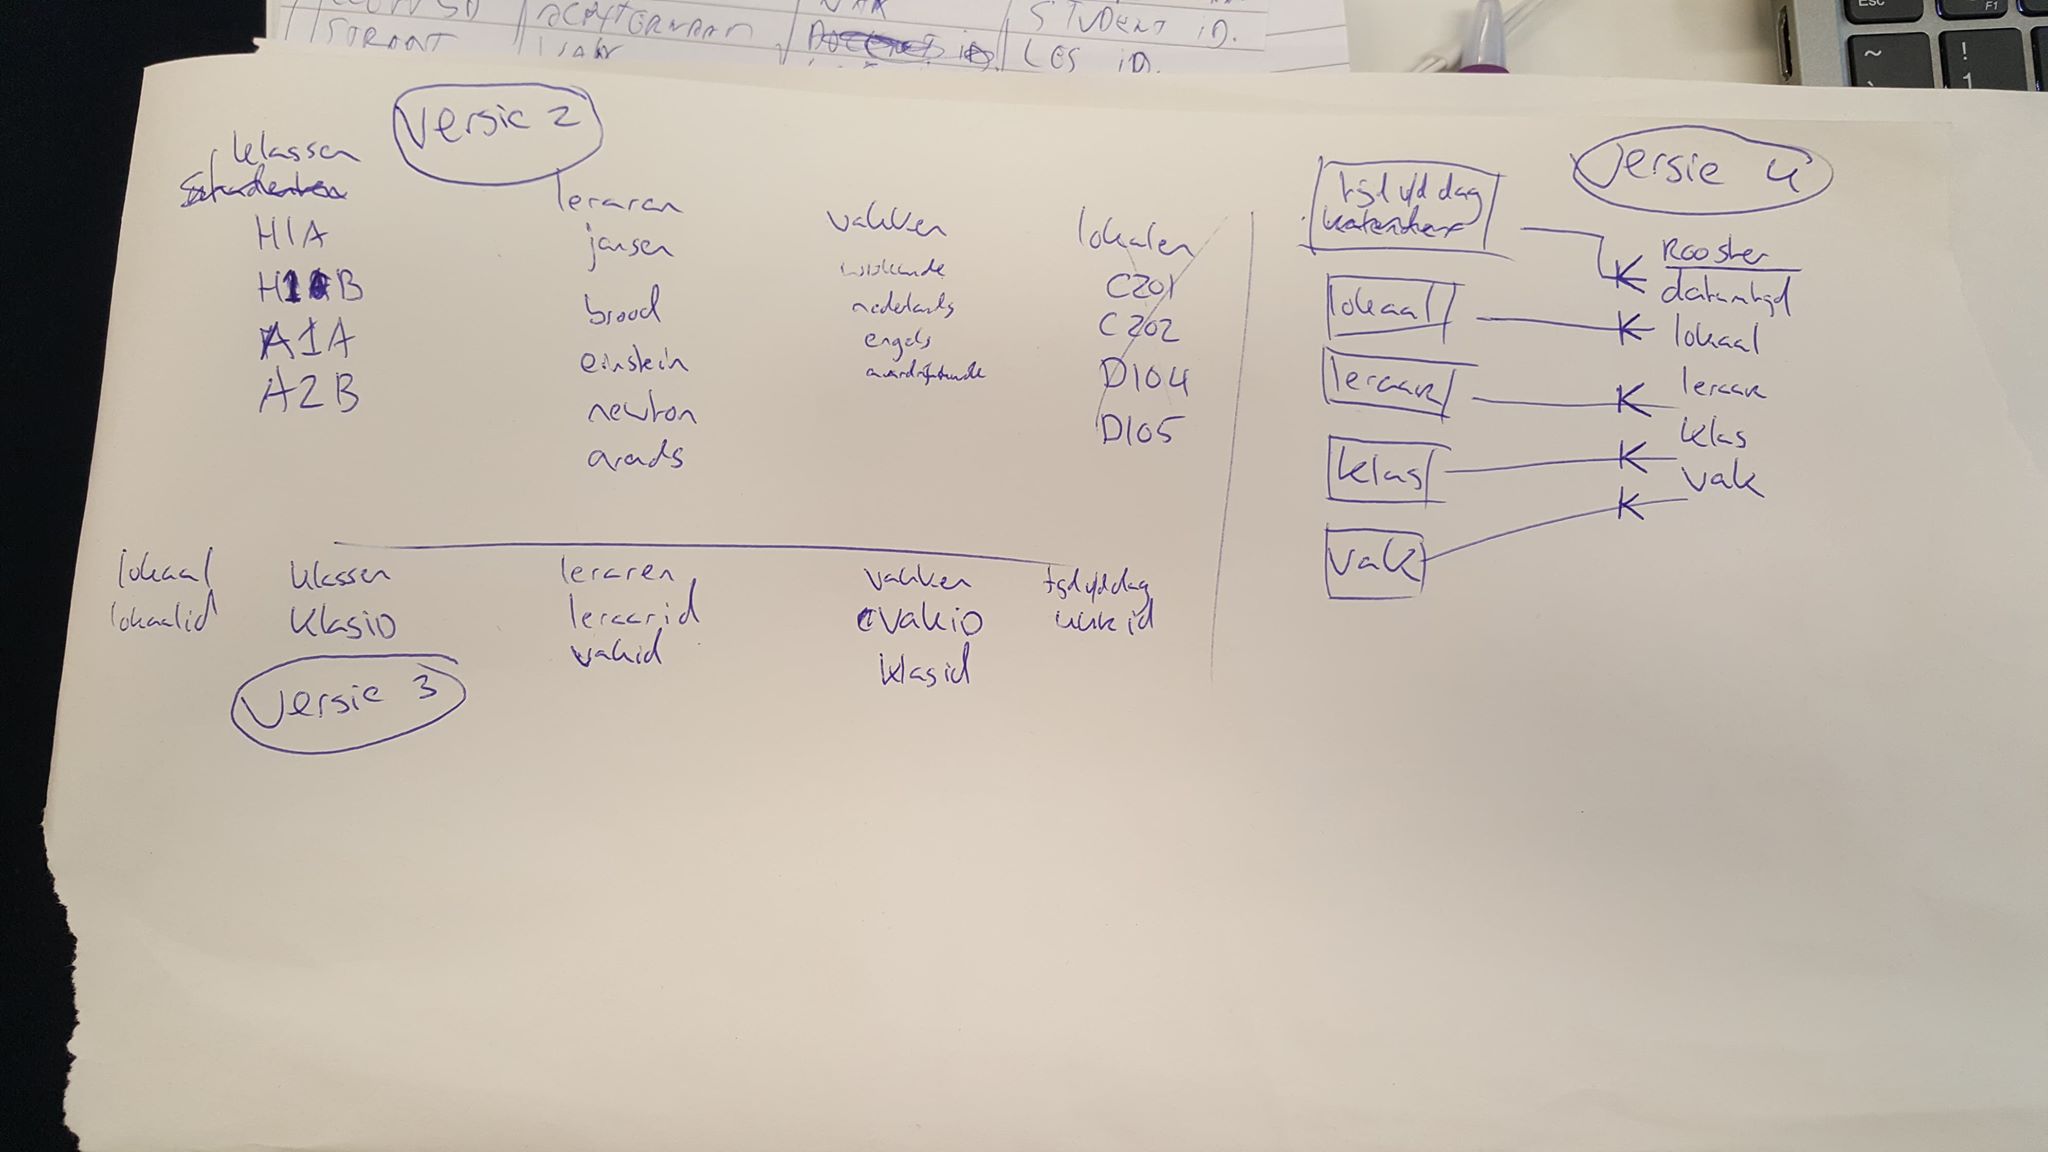 ACHTERNAAM
VAK
STUDENT ID.
LES ID.
Versie 2
klassen
Studenten
H1A
H1B
A1A
A2B
leraren
jansen
brood
einstein
newton
arends
vakken
wiskunde
nederlands
engels
aardrijkskunde
lokalen
C201
C202
D104
D105
lokaal
lokaalid
klassen
klasID
leraren
leraarid
vakid
vakken
vakID
klasid
tijd v/d dag
uurid
Versie 3
Versie 4
tijd v/d dag
kalender
lokaal
leraar
klas
vak
Rooster
datumtijd
lokaal
leraar
klas
vak
Esc
F1
~
`
!
1